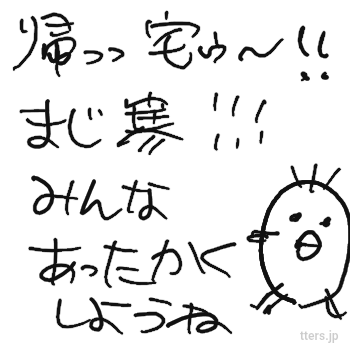 帰っっ宅ゥ〜!!
まじ寒!!!
みんな
あったかく
しようね
tters.jp